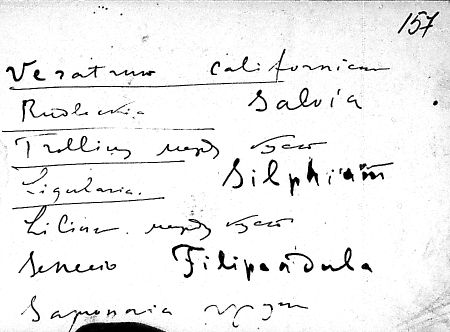 157
Veratrum californicum
Rudbeckia Salvia
Trollius
Ligularia. Silphium
Lilium
Senecio Filipendula
Saponaria